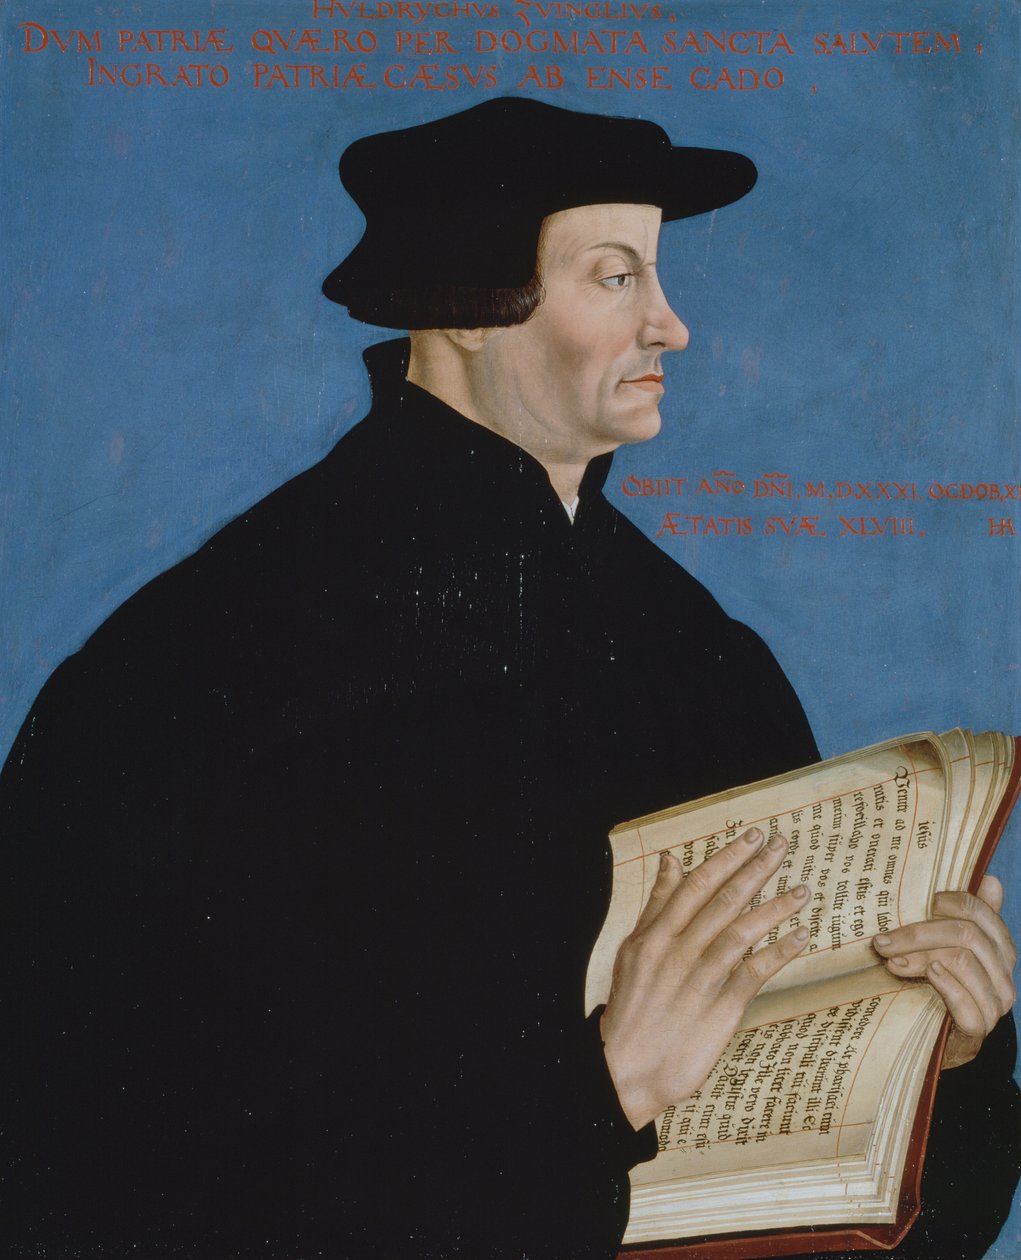 HVLDRYCHVS ZVINGLIVS,
DVM PATRIÆ QVÆRO PER DOGMATA SANCTA SALVTEM,
INGRATO PATRIÆ CÆSVS AB ENSE CADO,
OBIIT AÑO DÑI, M,DXXXI, OCDOB,X
ÆTATIS SVÆ, XLVIII, HA
iesus
Venite ad me omnes qui labo
ratis et onerati estis et ego
refocillabo vos tollite iugum
meum super vos et discite a
me quod mitis et
lis corde et
In
vero
comedere &c pharisaei enim
vidissent dixerunt illi Ec
ce discipuli tui faciunt
quod non licet facere in
sabbato Ille vero dixit
eis non legistis quid
fecerit Dauit cum esu
et ij qui e
quomodo